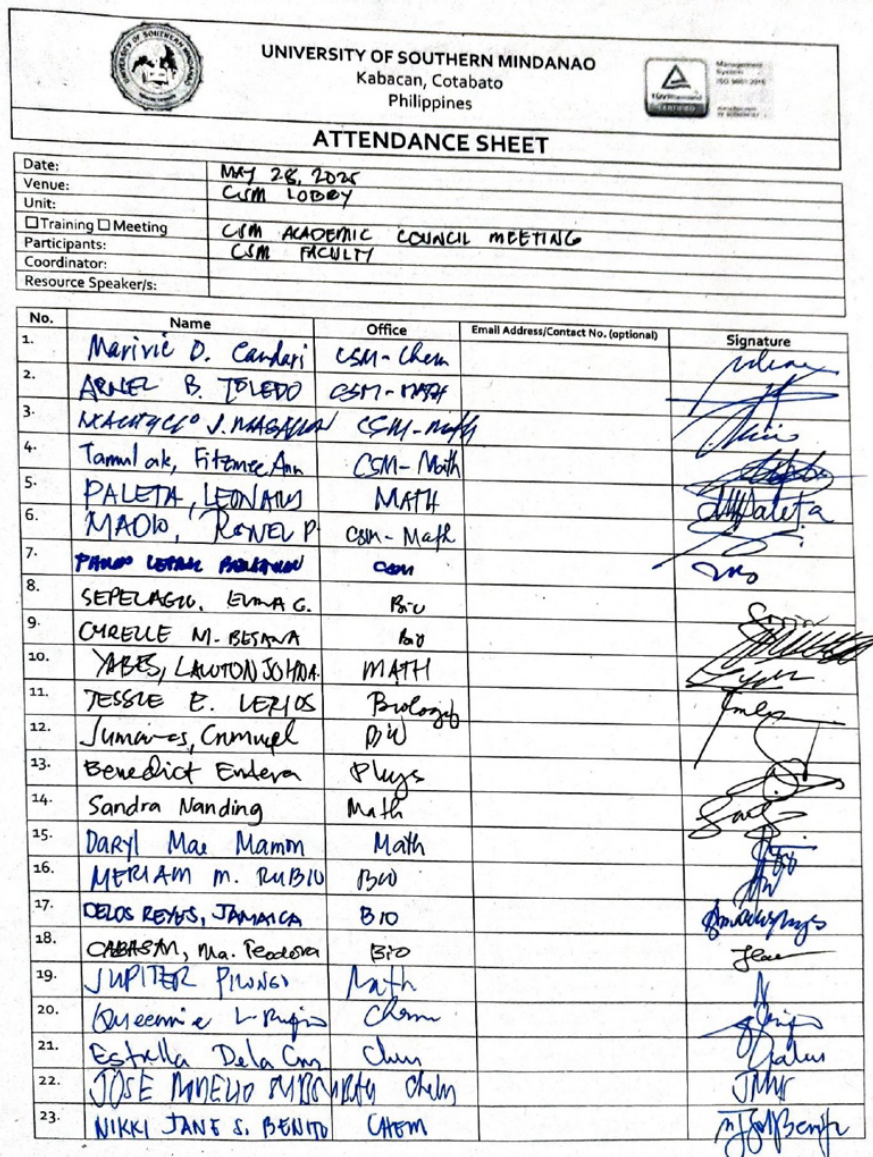 UNIVERSITY OF SOUTHERN MINDANAO
Kabacan, Cotabato
Philippines
Management
System
ISO 9001:2015
TÜVRheinland
CERTIFIED
ATTENDANCE SHEET
Date: MAY 28, 2025
Venue: CSM LOBBY
Unit:
☐Training ☐Meeting CSM ACADEMIC COUNCIL MEETING
Participants: CSM FACULTY
Coordinator:
Resource Speaker/s:
No. Name Office Email Address/Contact No. (optional) Signature
1. Marivic D. Candari CSM-Chem
2. ARNEL B. TOLEDO CSM-MATH
3. J. CSM-Math
4. Tamulak, Fitzmee Ann CSM-Math
5. PALETA, LEONARD MATH
6. RONEL P. CSM-Math
7. CSM
8. SEPELAGIO, ELMA G. Bio
9. CYRELLE M. BESANA Bio
10. YABES, LAWTON JOHN A. MATH
11. JESSIE E. Biology
12. Bio
13. Benedict Endera Phys
14. Sandra Nanding Math
15. Daryl Mae Mamon Math
16. MERIAM M. RUBIO BIO
17. DELOS REYES, JAMAICA BIO
18. CABASAN, Ma. Teodora Bio
19. JUPITER PILONGO Math
20. Queennie L. Chem
21. Estrella Dela Cruz Chem
22. JOSE Chem
23. NIKKI JANE S. BENITO CHEM